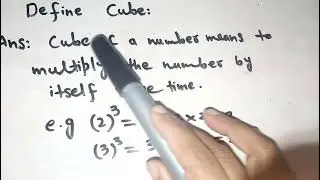 Define Cube:
Ans: Cube of a number means to
multiply the number by
itself time.
e.g (2)³ =
(3)³ = 3